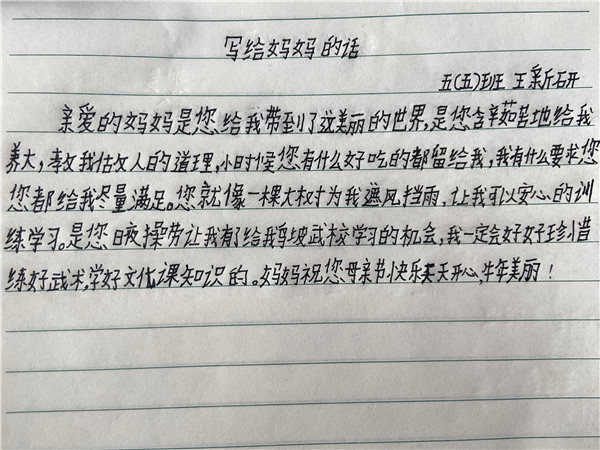 写给妈妈的话
五(五)班 王新研
亲爱的妈妈是您给我带到了这美丽的世界,是您含辛茹苦地给我
养大,教我做人的道理,小时候您有什么好吃的都留给我,我有什么要求您
您都给我尽量满足。您就像一棵大树为我遮风挡雨,让我可以安心的训
练学习。是您日夜操劳让我有了给我鸟坡武校学习的机会,我一定完好好珍惜
练好武术,学好文化课知识的。妈妈祝您母亲节快乐天天开心,年年美丽!